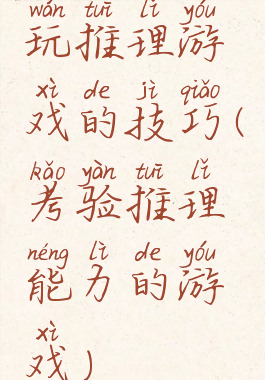 wán tuī lǐ yóu
玩推理游
xì de jì qiǎo
戏的技巧(
kǎo yàn tuī lǐ
考验推理
néng lì de yóu
能力的游
xì
戏)